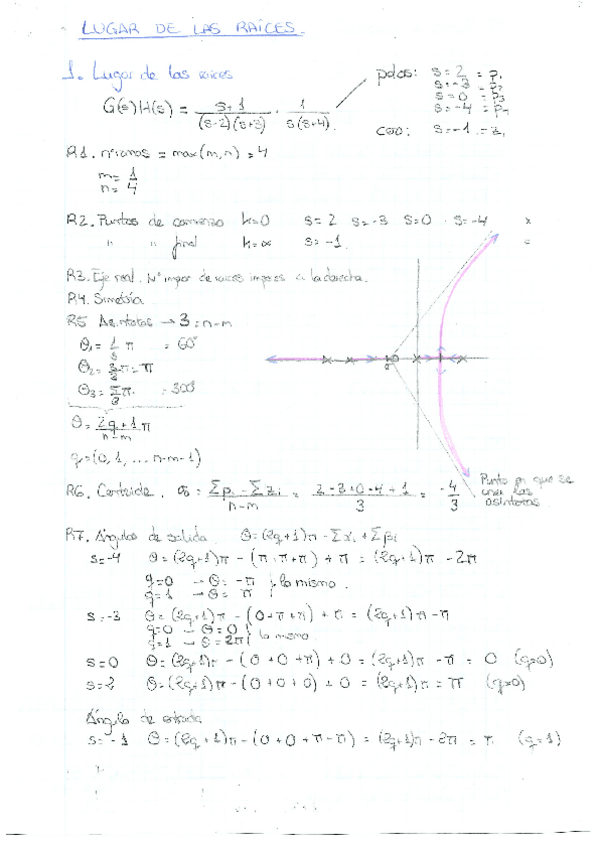 LUGAR DE LAS RAÍCES.
1. Lugar de las raíces
G(s)H(s) = s+1 / (s-2)(s+3) · 1 / s(s+4)
polos: s=2 = p1
s=-3 = p2
s=0 = p3
s=-4 = p4
cero: s=-1 = z1
R1. nº ramas = max(m,n) = 4
m = 1
n = 4
R2. Puntos de comienzo k=0 s=2 s=-3 s=0 s=-4 x
" " final k=∞ s=-1 o
R3. Eje real. Nº impar de raices impares a la derecha.
R4. Simetría
R5 Asíntotas → 3 = n-m
θ1 = 1/3 π = 60º
θ2 = 3/3 π = π
θ3 = 5/3 π = 300º
θ = 2q+1 / n-m π
q = (0, 1, ... n-m-1)
R6. Centroide. σ0 = Σpi - Σzi / n-m = 2-3+0-4+1 / 3 = -4/3
Punto en que se
unen las
asíntotas.
R7. Ángulos de salida θ=(2q+1)π - Σαi + Σβi
s=-4 θ=(2q+1)π - (π+π+π) + π = (2q+1)π - 2π
q=0 → θ=-π
q=1 → θ= π } lo mismo.
s=-3 θ=(2q+1)π - (0+π+π) + π = (2q+1)π - π
q=0 → θ=0
q=1 → θ=2π } lo mismo.
s=0 θ=(2q+1)π - (0+0+π) + 0 = (2q+1)π - π = 0 (q=0)
s=2 θ=(2q+1)π - (0+0+0) + 0 = (2q+1)π = π (q=0)
Ángulo de entrada
s=-1 θ=(2q+1)π - (0+0+π-π) = (2q+1)π - 2π = π (q=1)